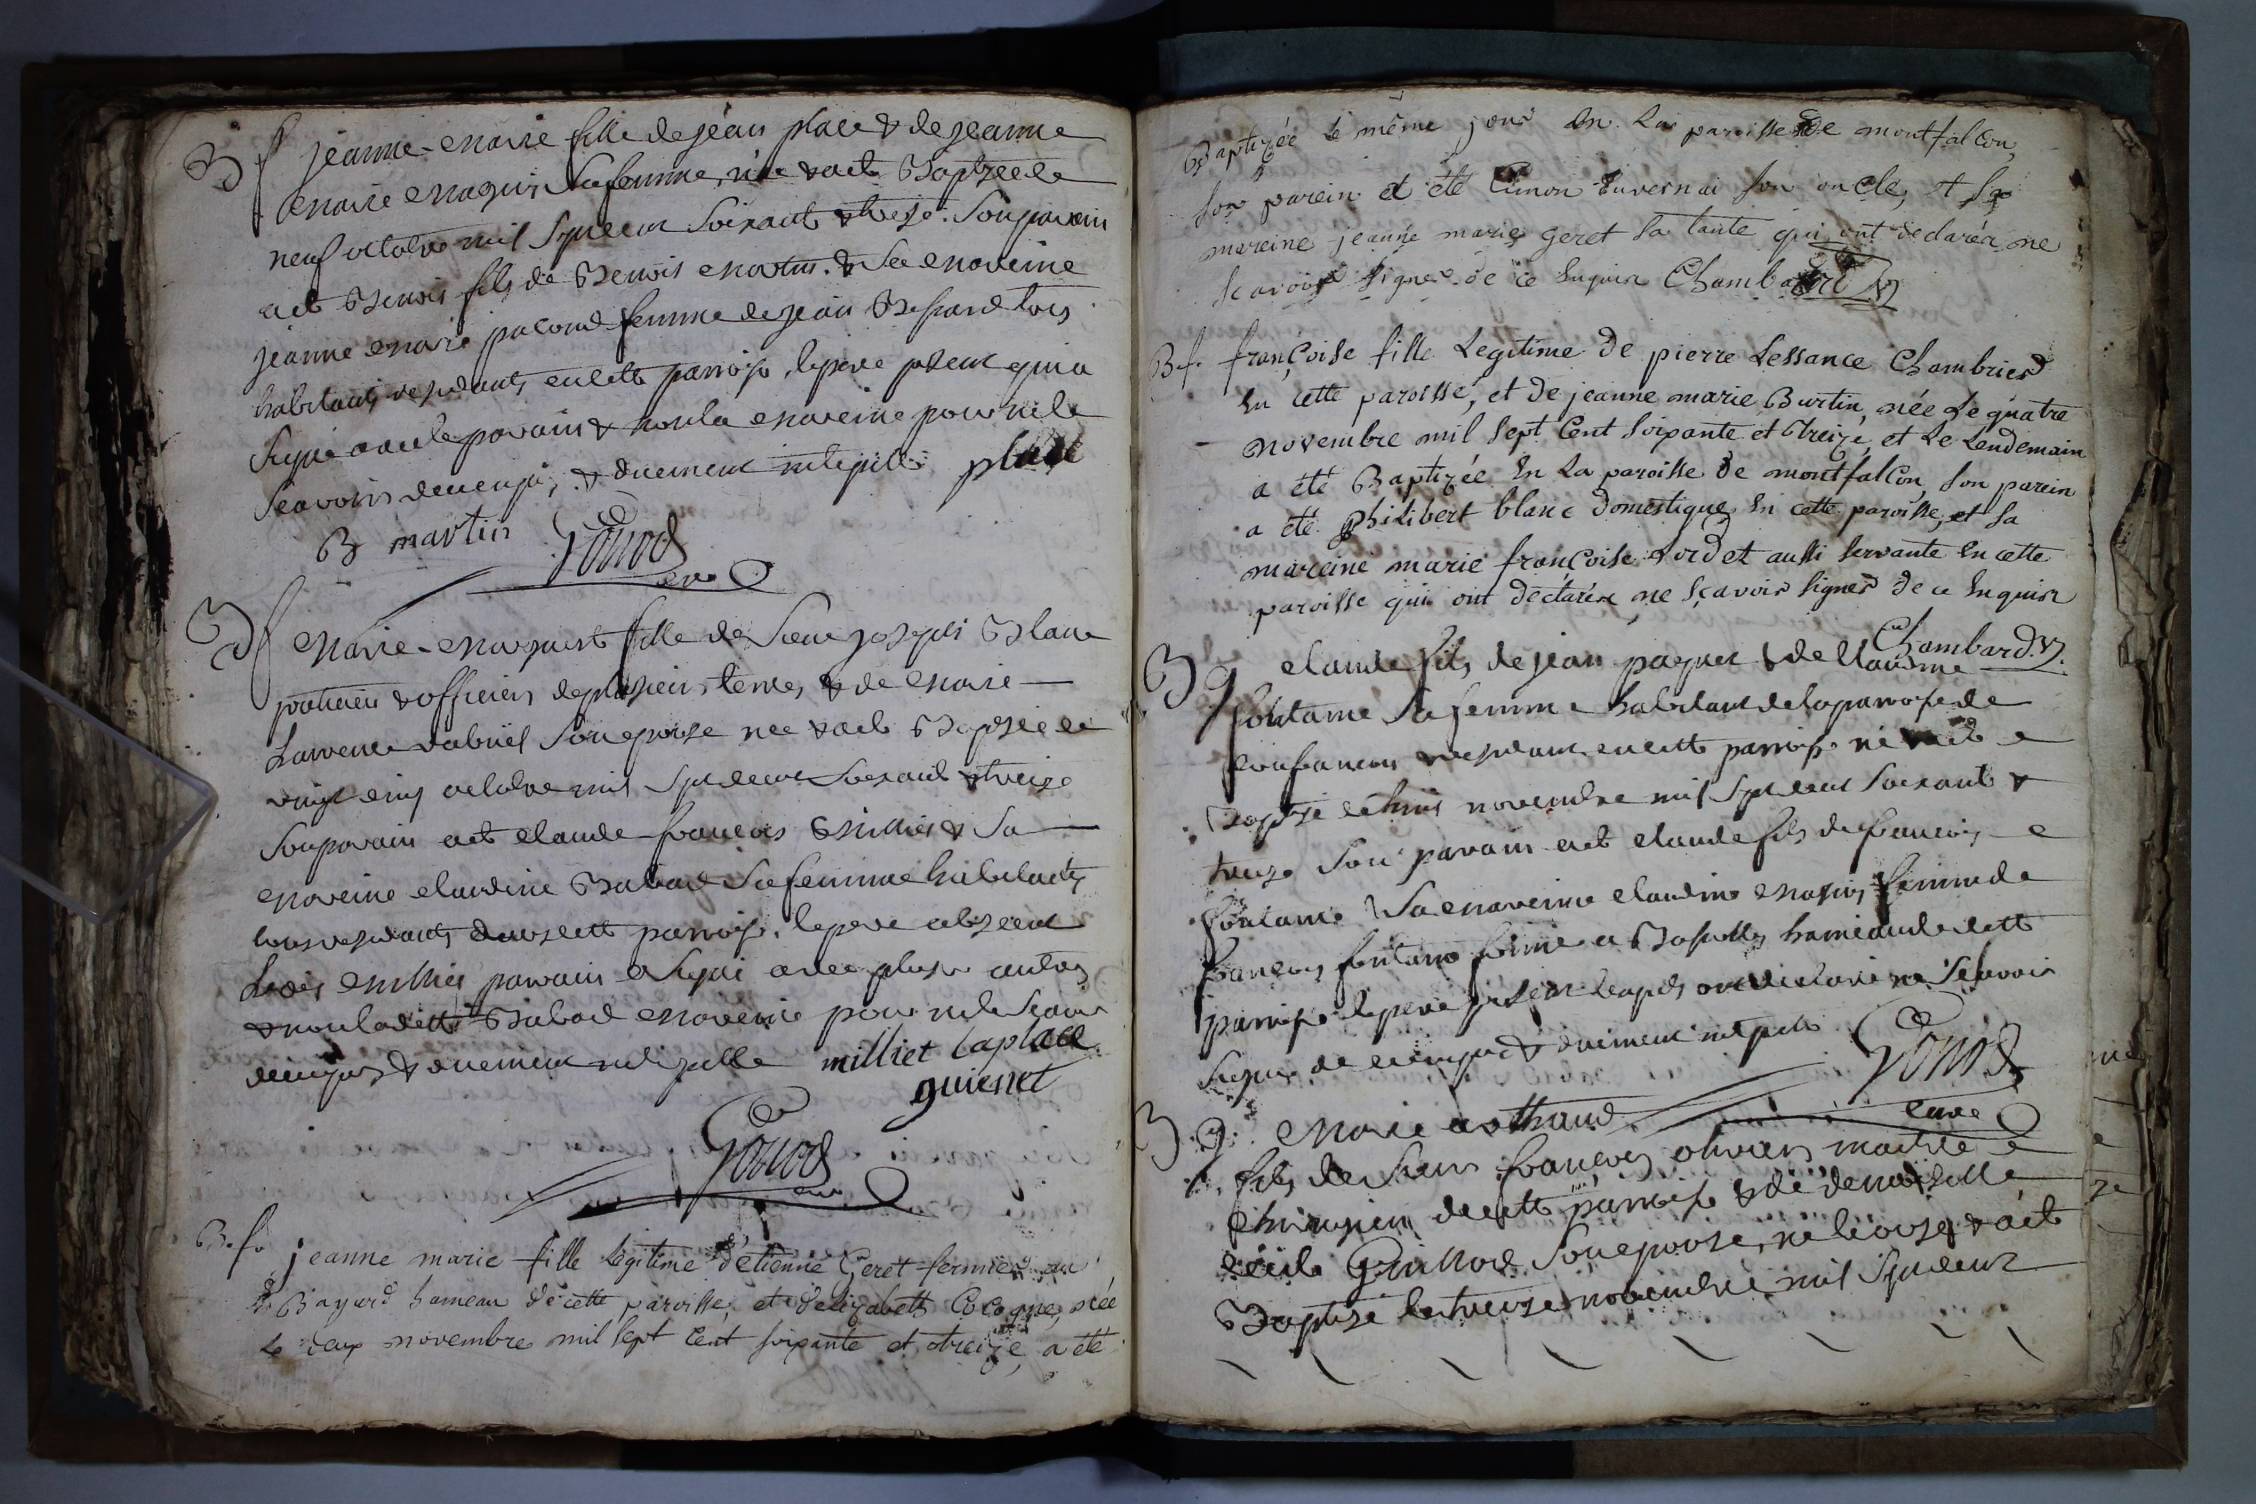 B f jeanne-marie fille de jean place & de jeanne
marie maguin sa femme, née & a été Baptisée le
neuf octobre mil sept cent soixante & treize. Son parain
a été Benoit fils de Benoit martin. & sa mareine
jeanne marie pacoud femme de jean Besfard tous
habitants residants en cette parroisse, le pere présent qui a
signé avec le parain & non la mareine pour ne le
sçavoir de ce enquis, & duement interpellé place
B martin Gonod
curé
B f Marie-Marguerite fille de Sieur joseph Blanc
praticien & officier de plusieurs terres, & de marie
Laurence son epouse née & a été Baptisée le
vingt cinq octobre mil sept cent soixante & treize
Son parain a été claude françois Millier & sa
mareine claudine Babad sa femme habitants
tous residants dans cette parroisse, le pere absent
Ledit millier parain a signé avec plusr autres
& non ladette Babad mareine pour ne le sçavoir
de ce enquis & duement interpellée milliet laplace
guienet
Gonod
curé
B. f. jeanne marie fille légitime d'étienne Geret fermier au
Bayard hameau de cette paroisse, et d'elizabeth Cocogne, née
Le deux novembre mil sept Cent soixante et treize, a été
Baptizée le même jour en La paroisse de montfalcon,
son parein et été Simon Duvernai son oncle, et sa
mareine jeanne marie geret sa tante qui ont déclarés ne
sçavoir signer de ce Enquis Chambard V.
B. f. françoise fille Legitime de pierre Lessance Chambrier
En cette paroisse, et de jeanne marie Burtin, née Le quatre
novembre mil sept Cent soixante et treize, et Le Lendemain
a été Baptizée En La paroisse de montfalcon, son parein
a été philibert blanc domestique En cette paroisse, et sa
mareine marie françoise aussi servante En cette
paroisse qui ont déclarés ne sçavoir signer de ce Enquis
Chambard. V.
B g claude fils de jean paquet & de claudine
fontaine sa femme habitant de la parroisse de
& residant en cette parroisse né & a été
Baptisé le huit novembre mil sept cent soixante &
treize Son parain a été claude fils de françois
fontaine & sa mareine claudine maguin femme de
françois fontane hameau de cette
parroisse le pere présent lesquels ont déclaré ne sçavoir
signer de ce enquis & duement interpellés Gonod
curé
B. g. Marie arthaud
fils de Sieur françois olivier maitre
chirurgien de cette parroisse & de demoiselle
cécile Guillod son epouse, né le onze & a été
Baptisé le treize novembre mil sept cent